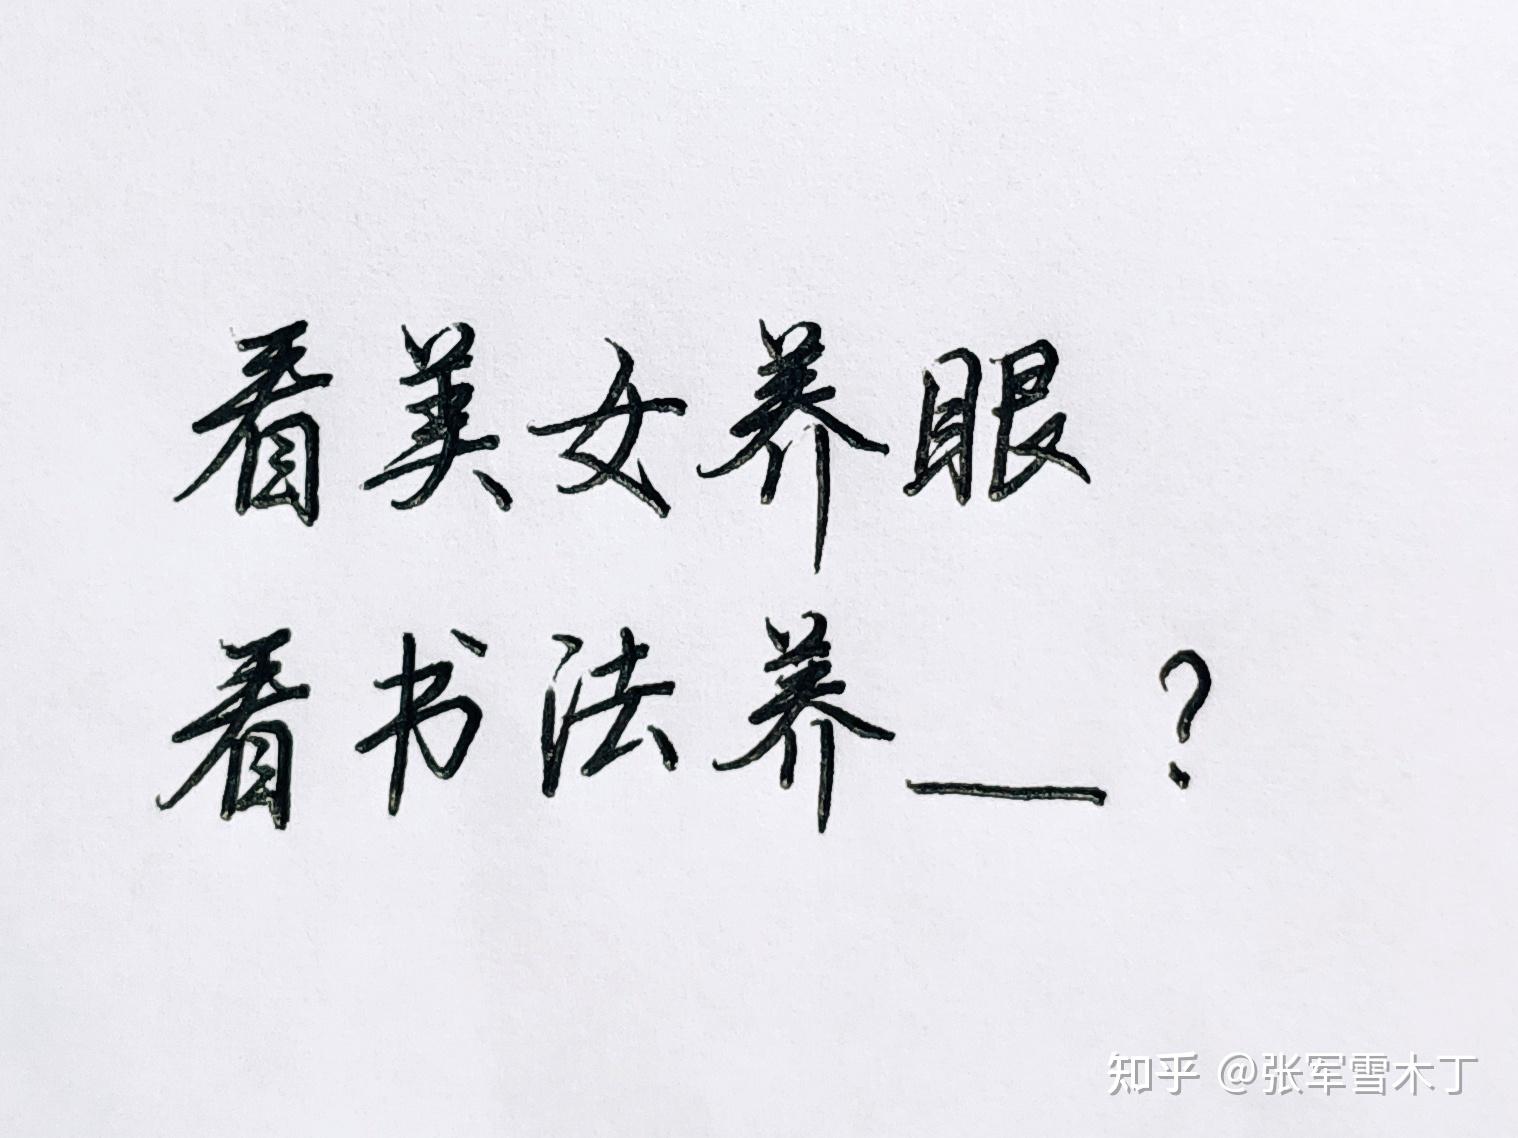 看美女养眼
看书法养__?
知乎 @张军雪木丁